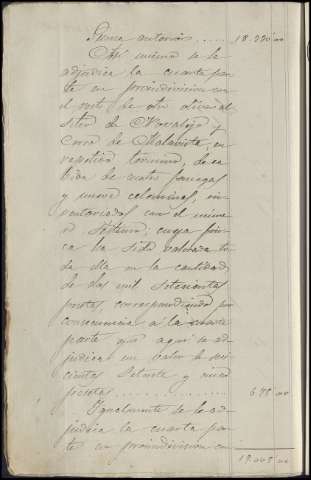 Suma anterior ..... 18.330 00
Así mismo se le
adjudica la cuarta par
te en proindivision en
el resto de otro olivar al
sitio de Novalejo y
Cerro de Malavista, en
repetido término, de ca
bida de cuatro fanegas
y nueve celemines, in
ventariado con el núme
ro séptimo; cuya fin
ca ha sido valorada to
da ella en la cantidad
de dos mil setecientas
pesetas, correspondiendo por
consecuencia á la cuarta
parte que aquí se ad
judica un valor de seis
cientas setenta y cinco
pesetas ............ 675 00
Igualmente se le ad
judica la cuarta par
te en proindivision en
19.005 00